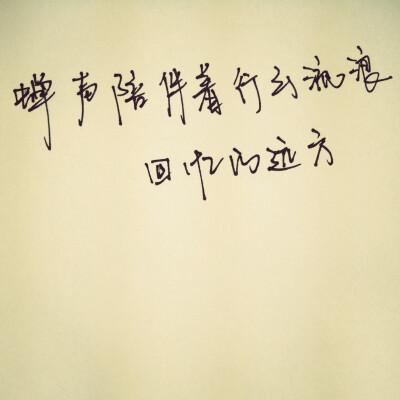 蝉声陪伴着行云流浪
回忆的远方